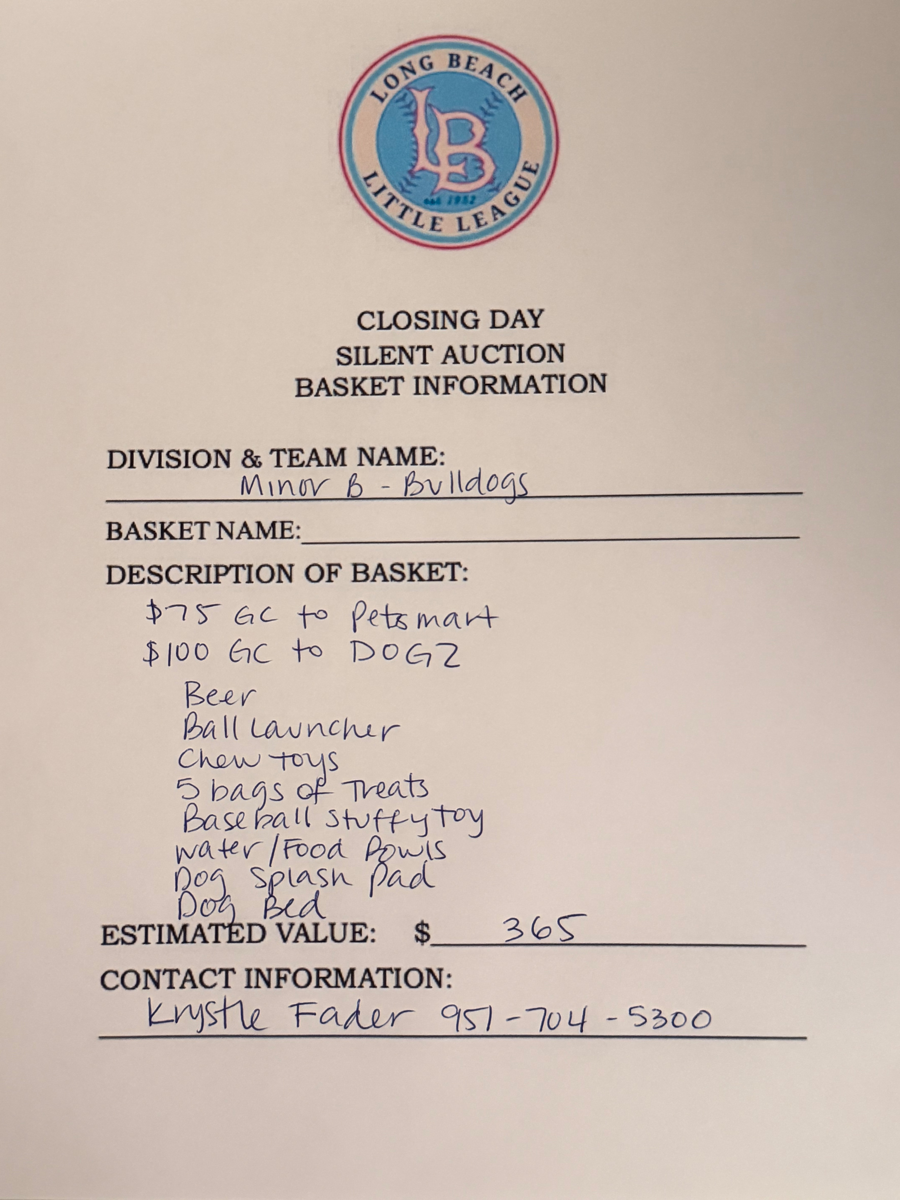 LONG BEACH
LB
est 1952
LITTLE LEAGUE
CLOSING DAY
SILENT AUCTION
BASKET INFORMATION
DIVISION & TEAM NAME:
Minor B - Bulldogs
BASKET NAME:
DESCRIPTION OF BASKET:
$75 GC to Petsmart
$100 GC to DOGZ
Beer
Ball Launcher
Chew toys
5 bags of Treats
Baseball stuffy toy
water/Food Bowls
Dog Splash Pad
Dog Bed
ESTIMATED VALUE: $ 365
CONTACT INFORMATION:
Krystle Fader 951-704-5300